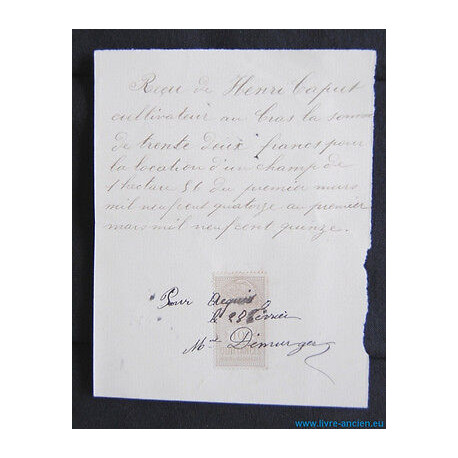 Reçu de Henri Caput
cultivateur au bras la somme
de trente deux francs pour
la location d'un champ de
1 hectare 56 du premier mars
mil neufcent quatorze au premier
mars mil neufcent quinze.
Pour Acquis
le 28 février
Mme Démurger
www.livre-ancien.eu